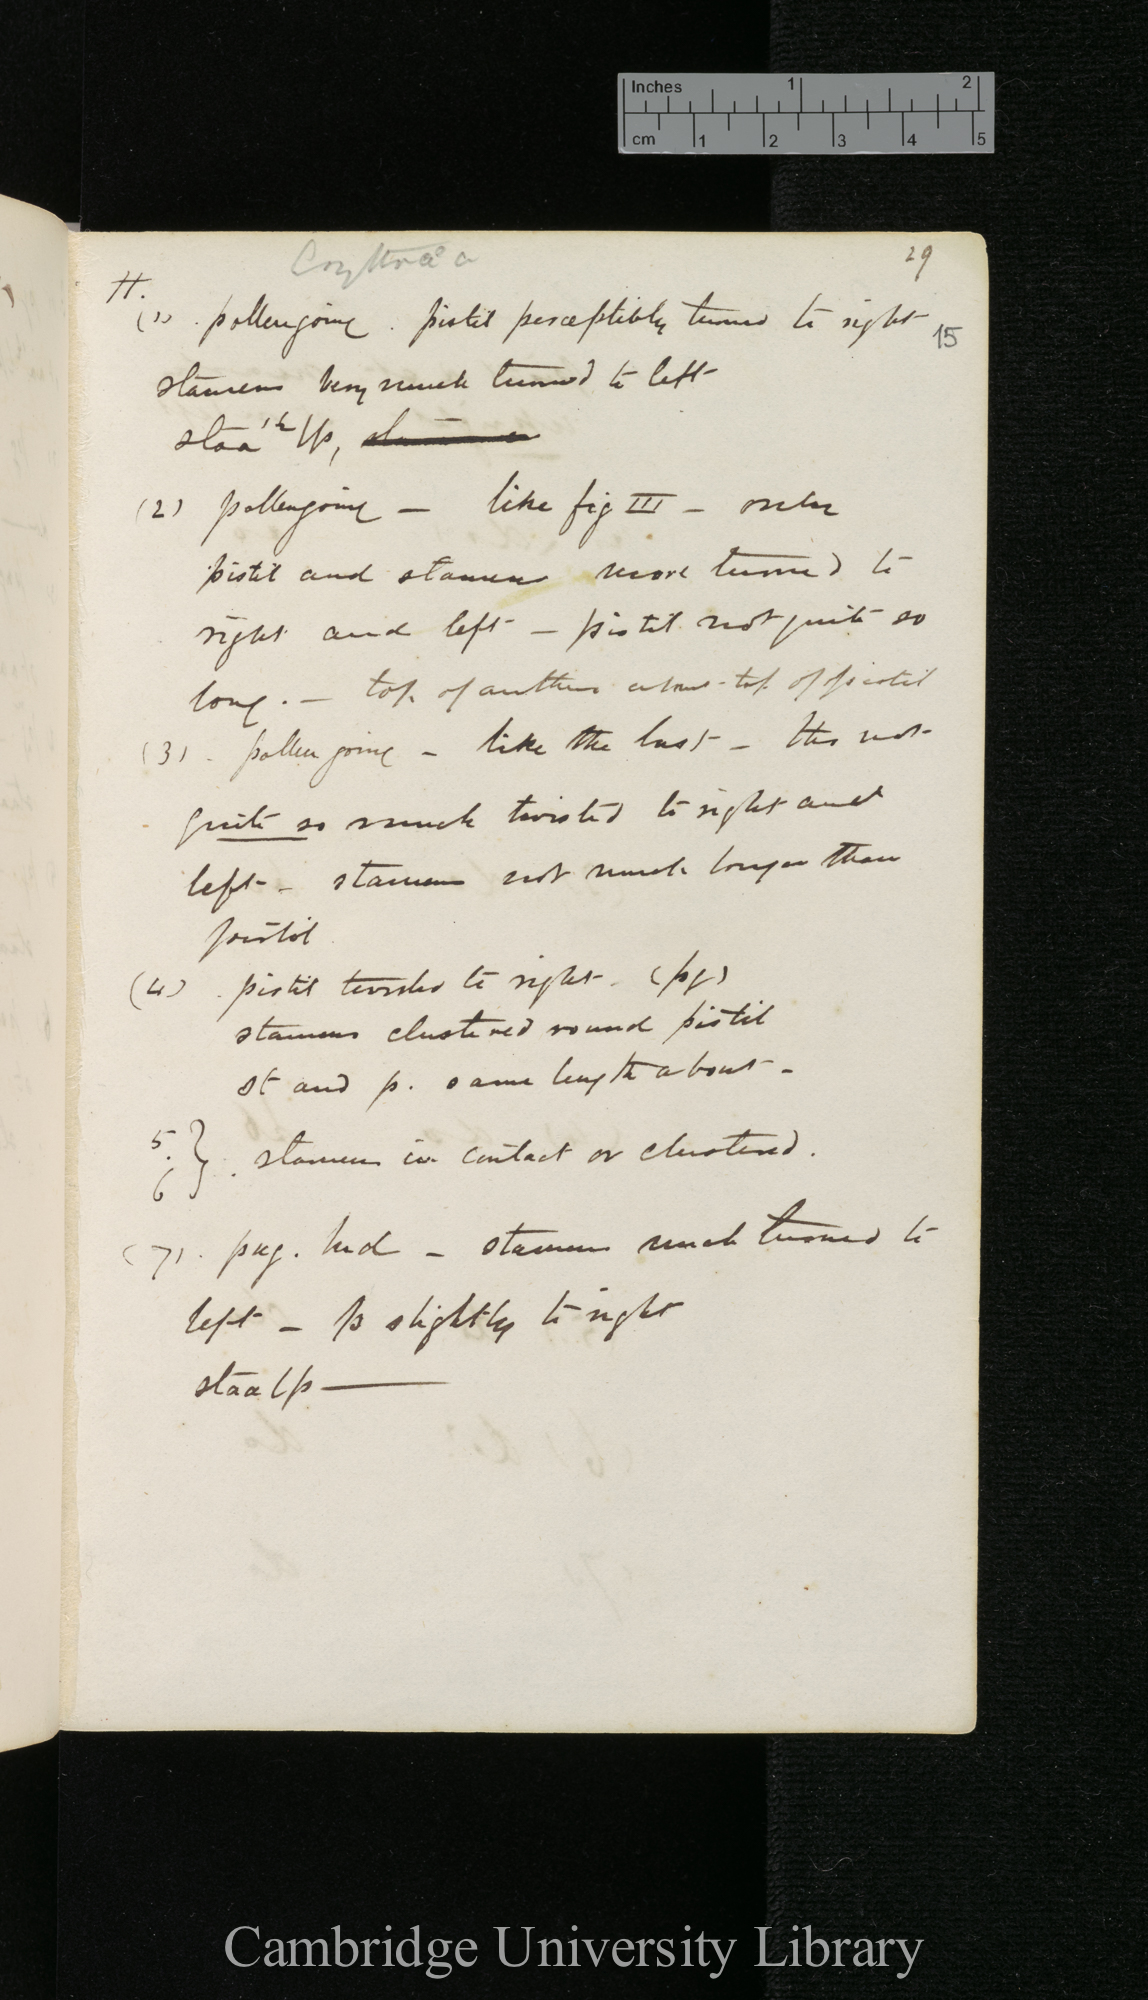 Inches 1 2
cm 1 2 3 4 5
Erythraea
29
H.
(1). pollengoing. pistil perceptibly turned to right
15
stamens very much turned to left
staa 1/2 /p,
(2) pollengoing — like fig III — only
pistil and stamens more turned to
right and left — pistil not quite so
long. — top of anthers above top of pistil
(3). pollen going — like the last — tho not
quite so much twisted to right and
left — stamens not much longer than
pistil
(4). pistil twisted to right. (pg)
stamens clustered round pistil
st and p. same length about —
5.
6 } . stamens in contact or clustered.
(7). pug. bud — stamens much turned to
left — p slightly to right
staa (p —
Cambridge University Library